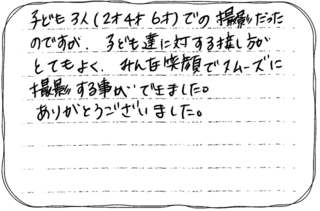 子ども3人(2才4才6才)での撮影だった
のですが、子ども達に対する接し方が
とてもよく、みんな笑顔でスムーズに
撮影する事ができました。
ありがとうございました。